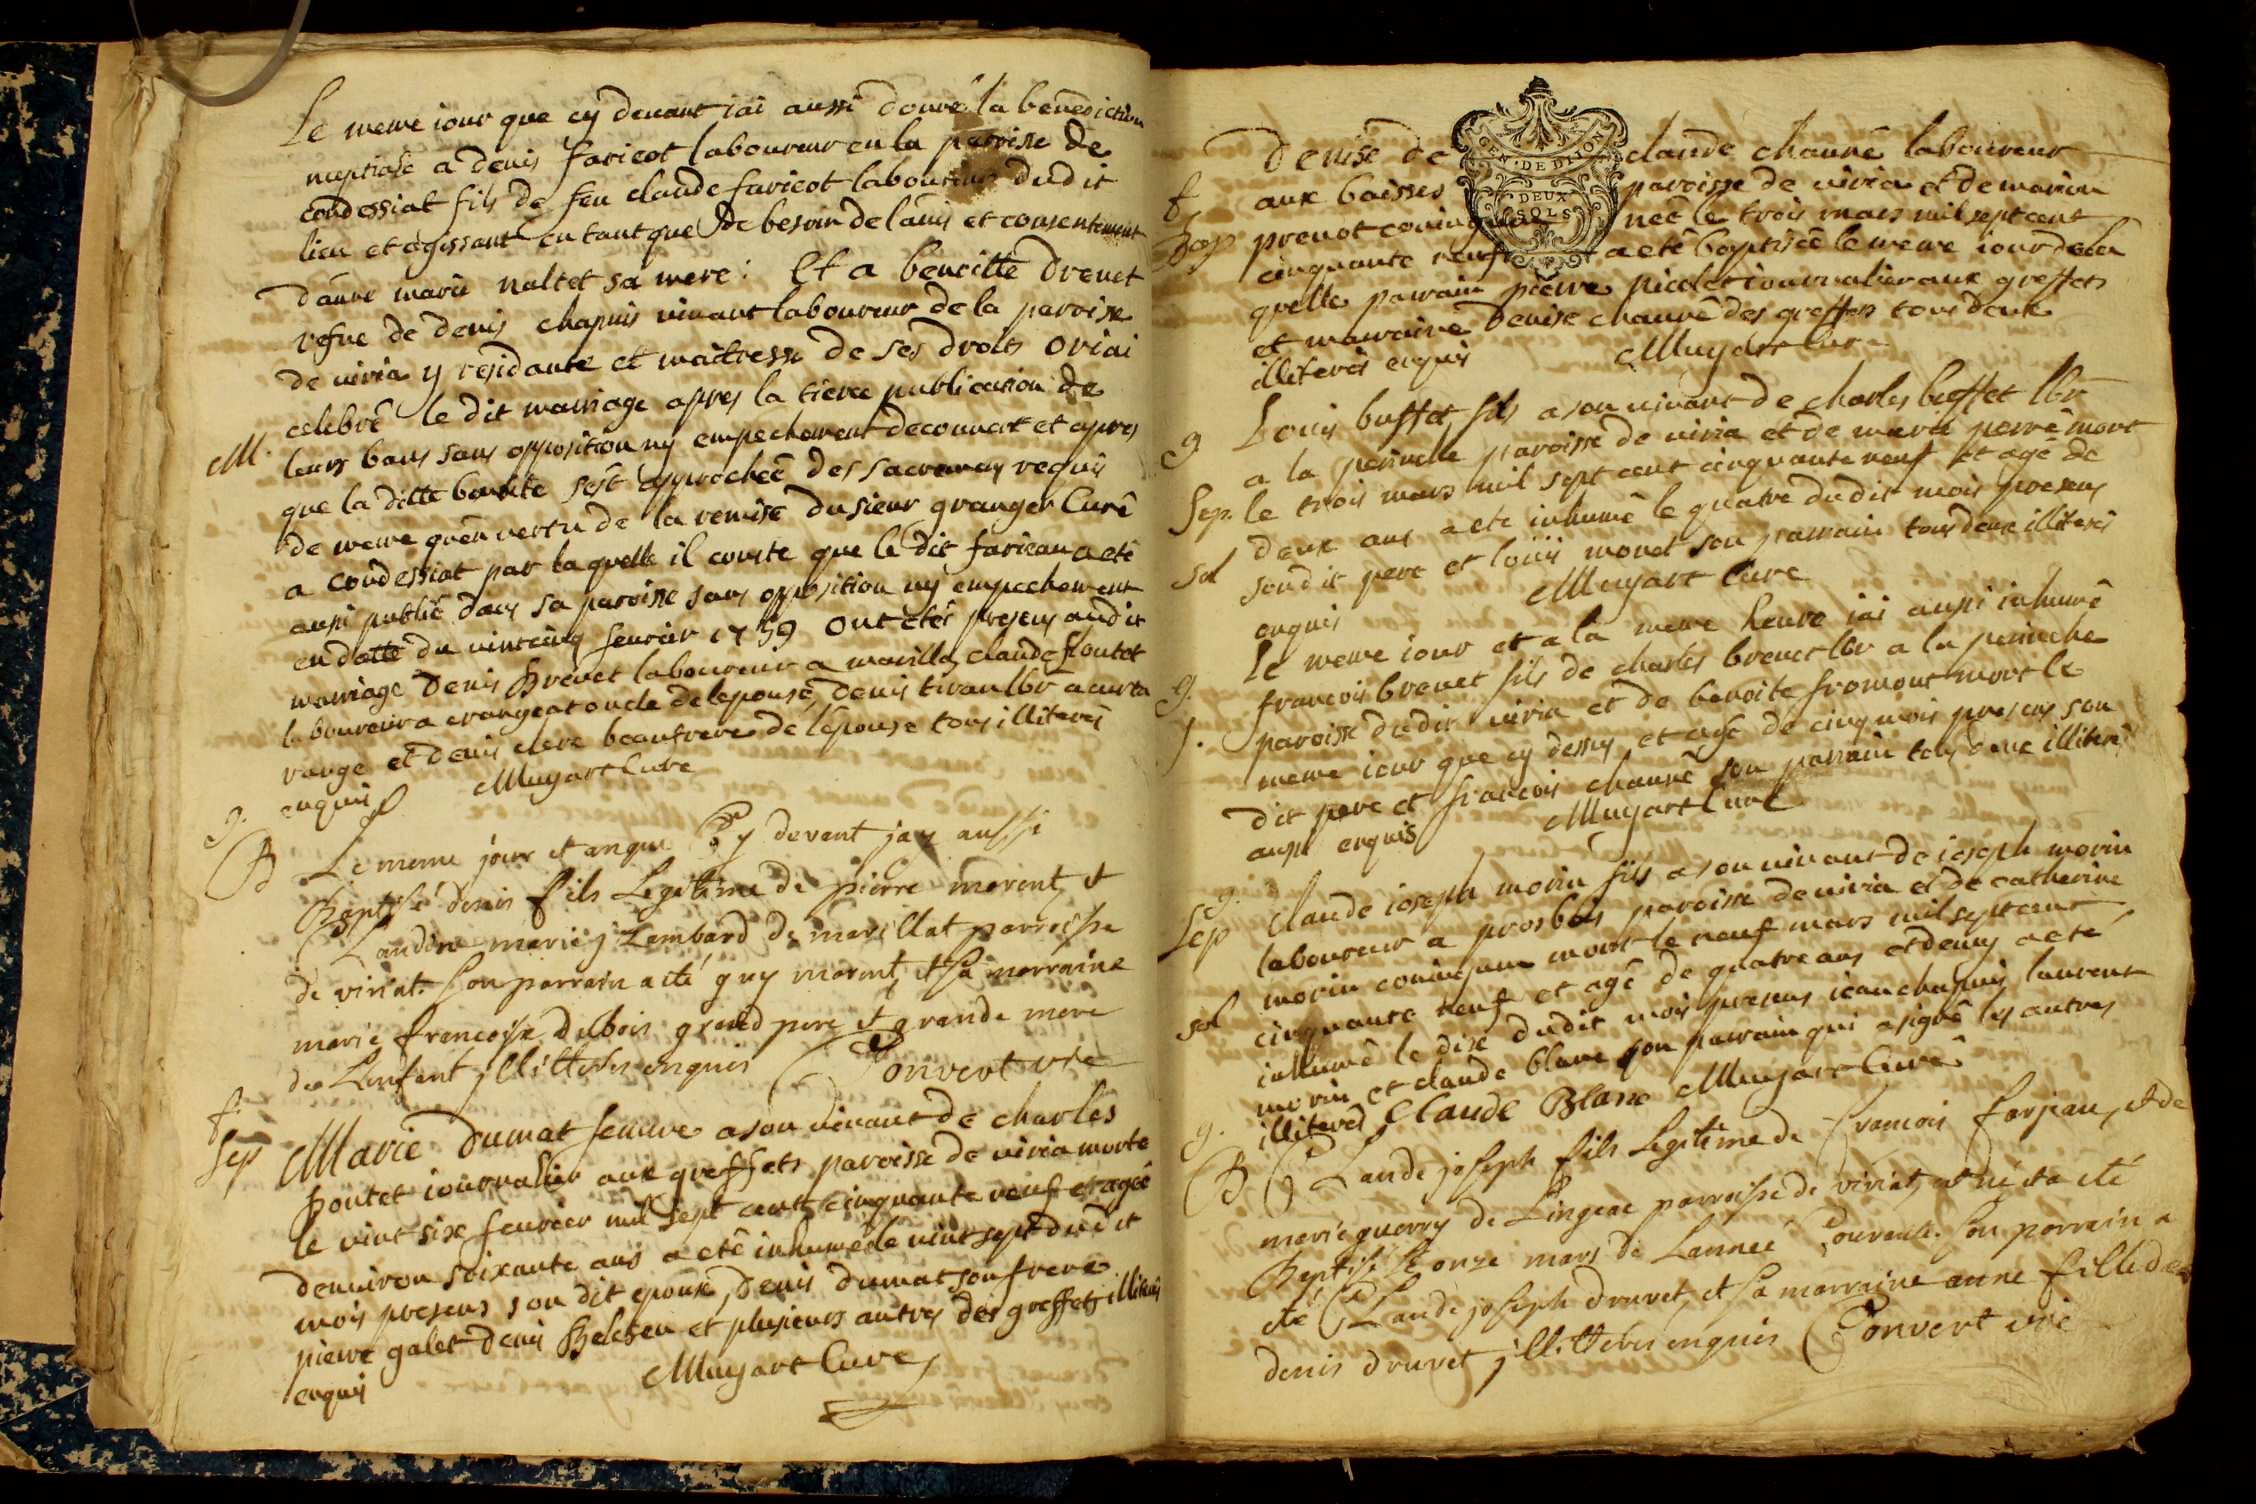 Le meme iour que cy devant iai aussi donné la benediction
nuptiale a denis faricot laboureur en la paroisse de
condessiat fils de feu claude faricot laboureur dudit
lieu et agissant en tant que de besoin de l'avis et consentement
d'anne marie naltet sa mere : Et a benoitte drevet
vefve de denis chapuis vivant laboureur de la paroisse
de viria y residante et maitresse de ses droits ou iai
celebré le dit mariage apres la tierce publication de
M. leurs bans sans opposition ny empechement decouvert et apres
que la ditte benoite s'est approcheé des sacremens requis
de meme qu'en vertu de la remise du sieur granger Curé
a condessiat par la quelle il conste que le dit faricau a eté
aussi publié dans sa paroisse sans opposition ny empechement
en datte du vintcinq fevrier 1759 ont etés presens au dit
mariage denis drevet laboureur a marilla, claude floutet
laboureur a crangeat oncle de l'epouse, denis tiran lbr a curta
range et denis clere beaufrere de l'epouse tous illiterés
enquis Muyart Cure
g.
B Le meme jour et an que Cy devant jay aussi
Baptisé denis fils Legitime de pierre morent, et
Claudine marie j Lombard de marillat parroisse
de viriat. Son parrain a été guy morent, et sa marraine
marie francoise dubois grand pere et grande mere
de Lenfant jllitterés enquis Convert vre
f.
Sep Marie Dumat femme a son vivant de charles
houtet iournalier aux greffets paroisse de viria morte
le vint six fevrier mil sept cent cinquante neuf et ageé
d'environ soixante ans a eté inhumeé le vint sept dudit
mois presens son dit epoux, denis dumat son frere
pierre galet denis Belesen et plusieurs autres des greffets illiterés
enquis Muyart Cure
Denise de claude chauné laboureur
GEN. DE DIJON
DEUX
SOLS
f. aux baisses paroisse de viria et de marie
Bap prevot coniugum neé le trois mars mil sept cent
cinquante neuf a eté baptiseé le meme iour de la
quelle parrain pierre nicolet iournalier aux greffets
et marraine denise chauné des greffets tous deux
illiterés enquis Muyart Cure
g. Louis buffet, fils a son vivant de charles buffet lbr
a la perinche paroisse de viria et de marie perré mort
Sep. le trois mars mil sept cent cinquante neuf et agé de
deux ans a ete inhumé le quatre dudit mois presens
sol son dit pere et loüis monet son parrain tous deux illiterés
enquis Muyart Cure
Le meme iour et a la meme heure iai aussi inhumé
g. francois brevet fils de charles brevet lbr a la perinche
S. paroisse dudit viria et de benoite fromont mort le
meme iour que cy dessus et agé de cinq mois presens son
dit pere et francois chauné son parrain tous deux illiterés
aussi enquis Muyart Curé
g.
Sep Claude ioseph morin fils a son vivant de ioseph morin
laboureur a prosbois paroisse de viria et de catherine
morin coniugum mort le neuf mars mil sept cent
sol cinquante neuf et agé de quatre ans et demy a eté
inhumé le dix dudit mois presens iean chapuis laurent
morin, et claude blanc son parrain qui a signé les autres
illiterés Claude Blanc Muyart Curé
g.
B Claude joseph fils Legitime de francois farjeau, et de
marie guerry de Lingeat parroisse de viriat, est né et a eté
Baptisé le onze mars de Lanneé Courante. Son parrain a
eté Claude joseph druvet, et sa marraine anne fille de
denis druvet jllitterés enquis Convert vre